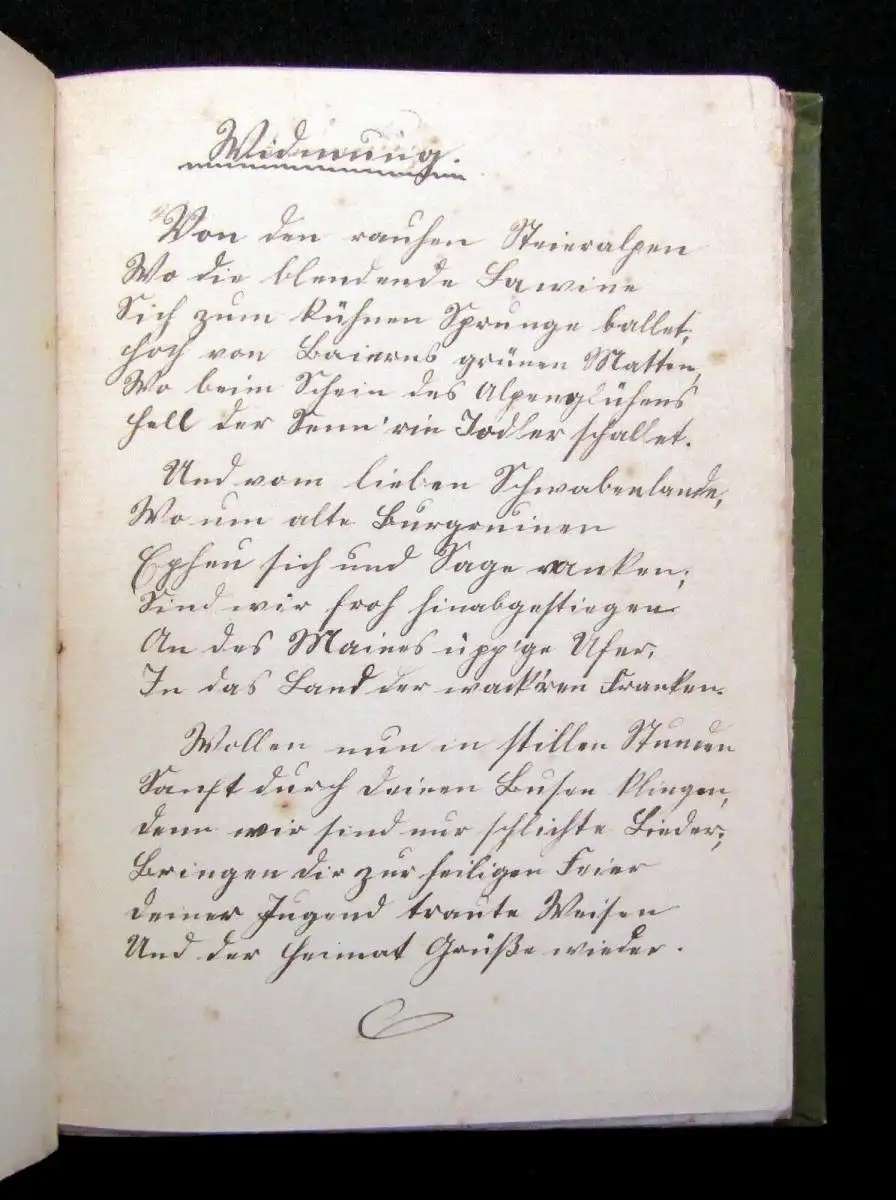 Widmung.
Von den rauhen Steieralpen
Wo die blendende Lawine
Sich zum kühnen Sprunge ballet,
Hoch von Baierns grünen Matten,
Wo beim Schein des Alpenglühens
Hell der Senn'rin Jodler schallet.
Und vom lieben Schwabenlande,
Wo um alte Burgruinen
Epheu sich und Sage ranken;
Sind wir froh hinabgestiegen
An des Maines üpp'ge Ufer,
In das Land der wack'ren Franken.
Wollen nun in stillen Stunden
Sanft durch deinen Busen klingen,
denn wir sind nur schlichte Lieder;
Bringen dir zur heiligen Feier
deiner Jugend traute Weisen
Und der Heimat Grüße wieder.